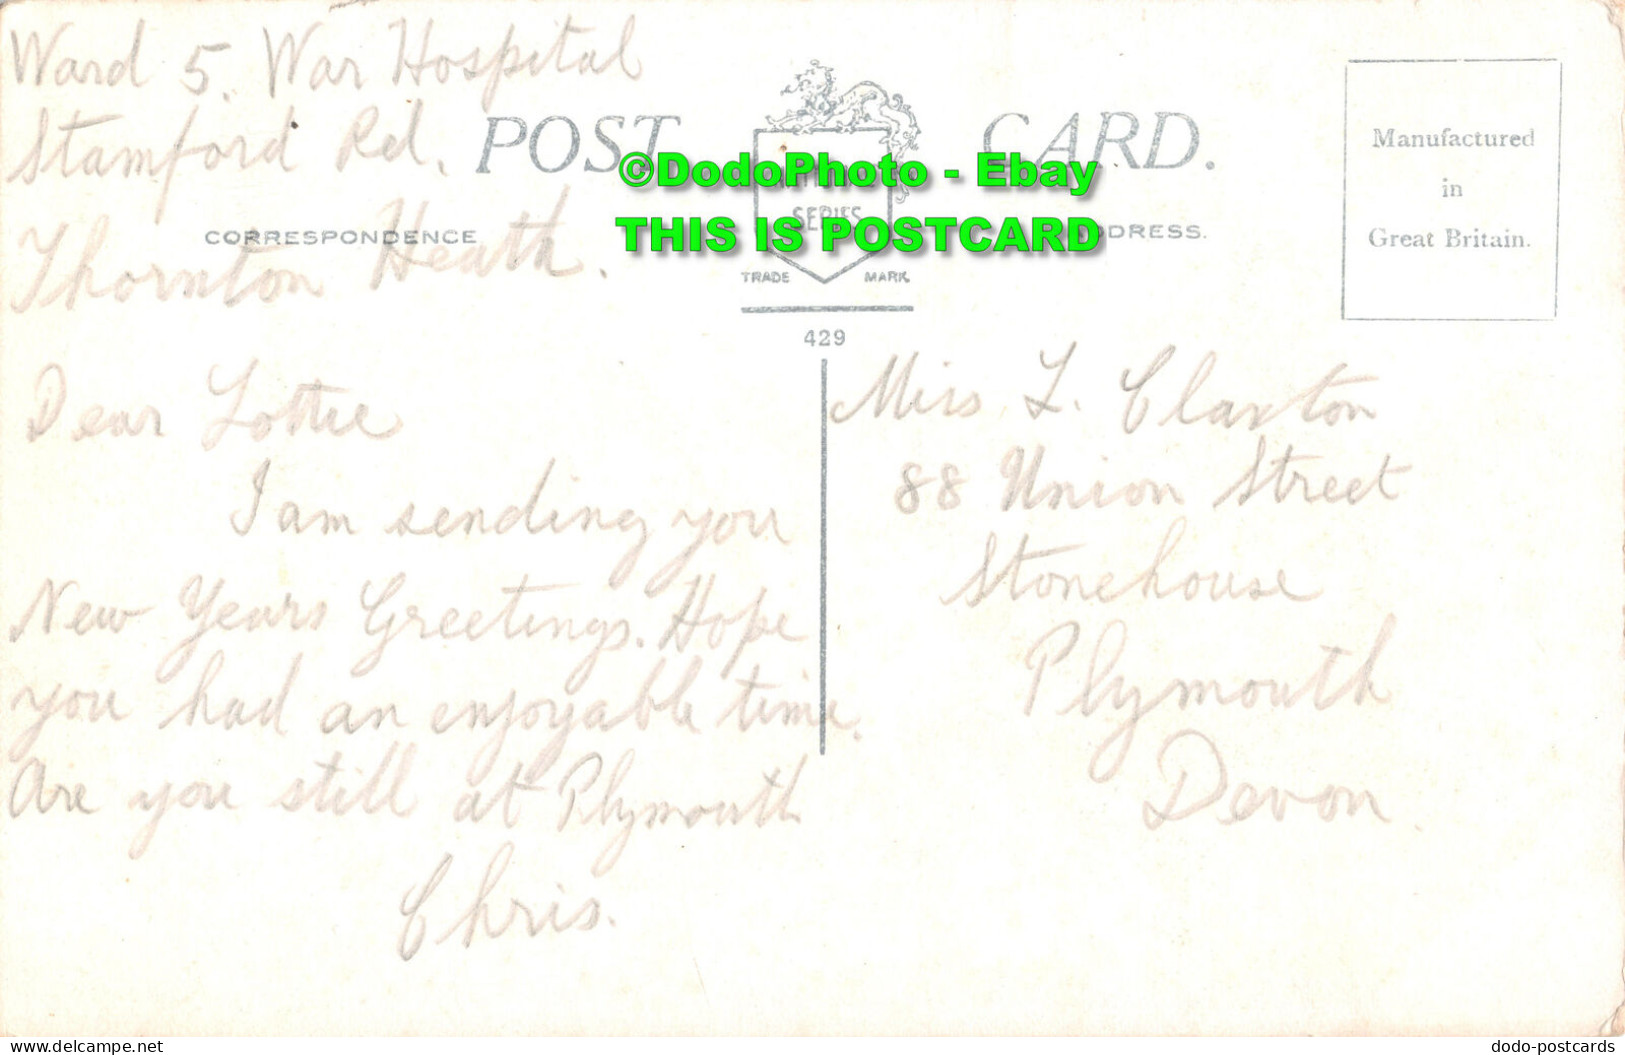 Ward 5. War Hospital
Stamford Rd.
Thornton Heath.
POST CARD.
SERIES
TRADE MARK
429
CORRESPONDENCE
DDRESS.
Manufactured
in
Great Britain.
©DodoPhoto - Ebay
THIS IS POSTCARD
Dear Lottie
I am sending you
New Years Greetings. Hope
you had an enjoyable time.
Are you still at Plymouth
Chris.
Miss L. Claxton
88 Union Street
Stonehouse
Plymouth
Devon.
www.delcampe.net
dodo-postcards